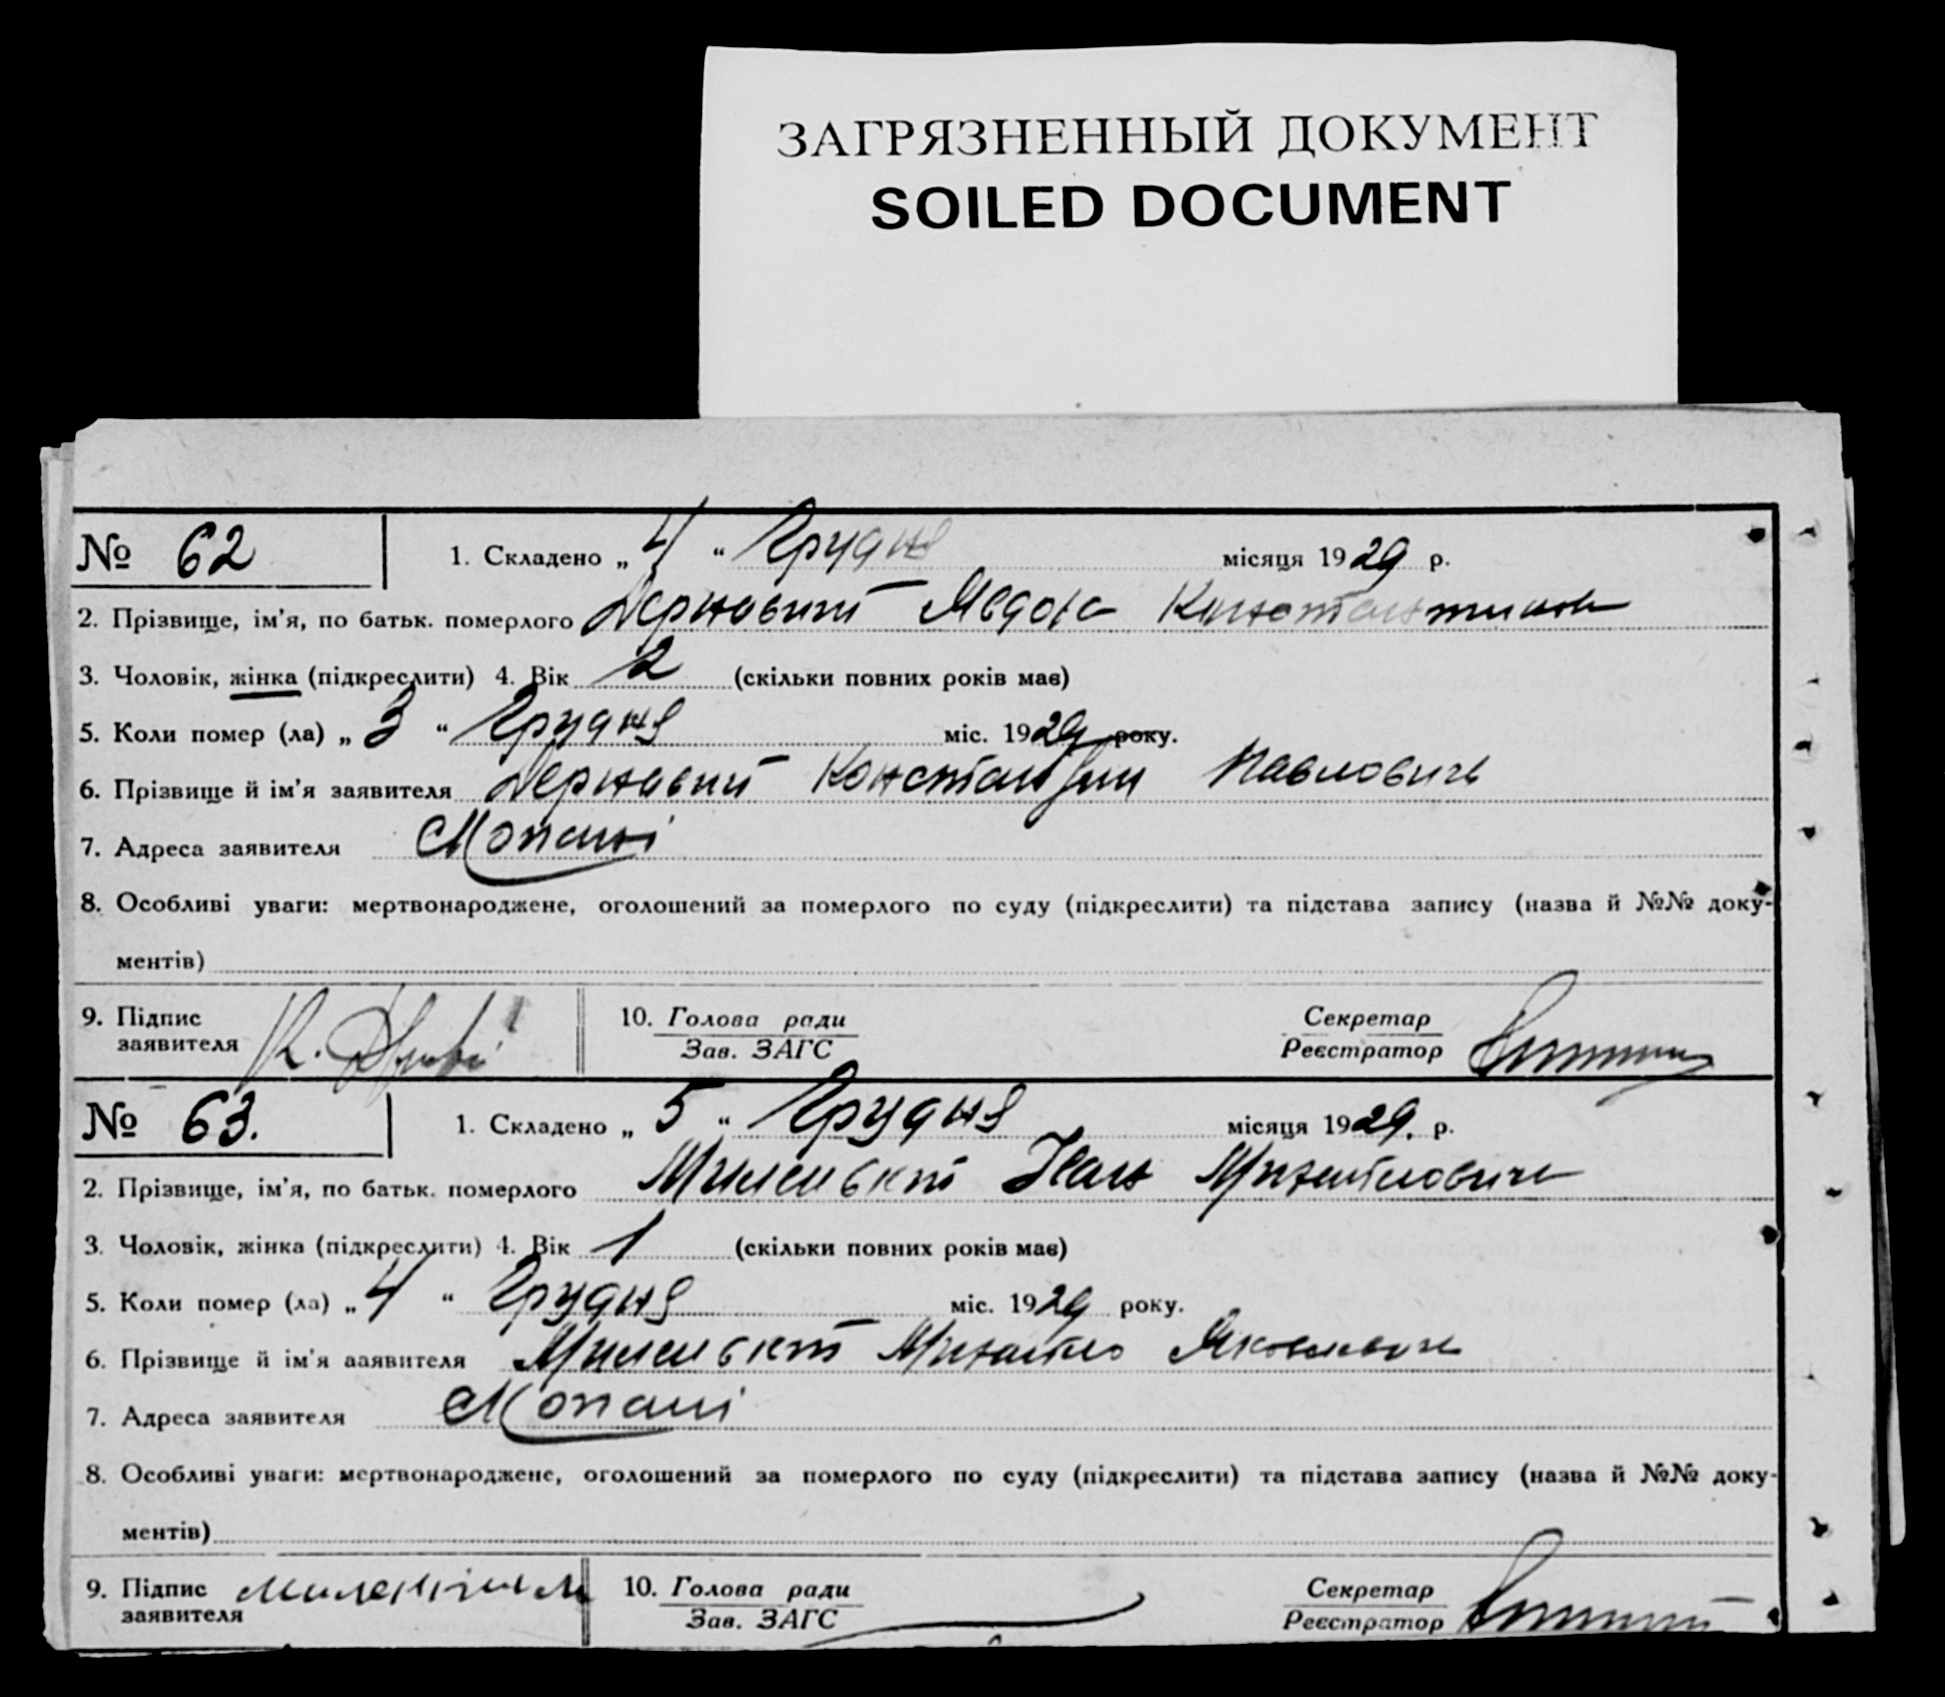 ЗАГРЯЗНЕННЫЙ ДОКУМЕНТ
SOILED DOCUMENT
№ 62
1. Складено „ 4 “ Грудня місяця 1929 р.
2. Прізвище, ім'я, по батьк. померлого
3. Чоловік, жінка (підкреслити) 4. Вік 2 (скільки повних років має)
5. Коли помер (ла) „ 3 “ Грудня міс. 1929 року.
6. Прізвище й ім'я заявителя Константин Павлович
7. Адреса заявителя
8. Особливі уваги: мертвонароджене, оголошений за померлого по суду (підкреслити) та підстава запису (назва й №№ доку-
ментів)
9. Підпис заявителя К.
10. Голова ради
Зав. ЗАГС
Секретар
Реєстратор
№ 63.
1. Складено „ 5 “ Грудня місяця 1929. р.
2. Прізвище, ім'я, по батьк. померлого Іван Михайлович
3. Чоловік, жінка (підкреслити) 4. Вік 1 (скільки повних років має)
5. Коли помер (ла) „ 4 “ Грудня міс. 1929 року.
6. Прізвище й ім'я заявителя Михайло Якович
7. Адреса заявителя
8. Особливі уваги: мертвонароджене, оголошений за померлого по суду (підкреслити) та підстава запису (назва й №№ доку-
ментів)
9. Підпис заявителя
10. Голова ради
Зав. ЗАГС
Секретар
Реєстратор